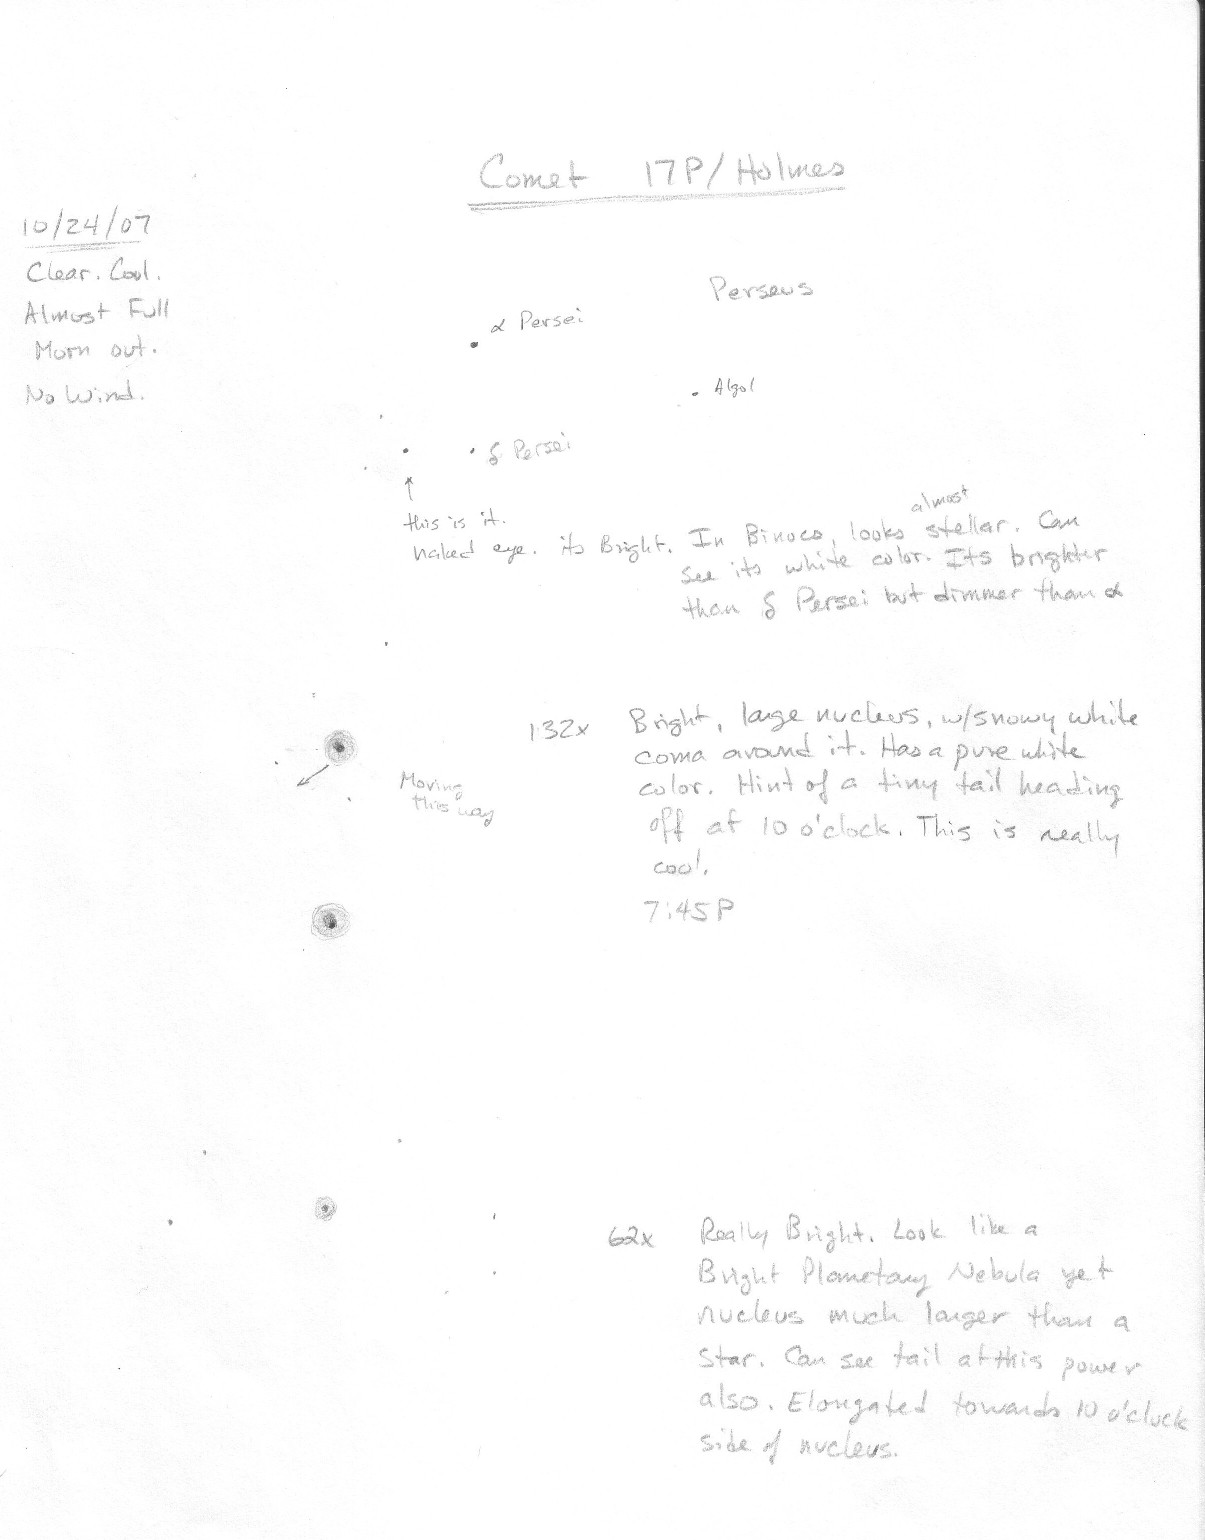 Comet 17P/Holmes
10/24/07
Clear. Cool.
Almost Full
Moon out.
No Wind.
Perseus
α Persei
Algol
δ Persei
this is it.
naked eye. its Bright. In Binocs, looks almost stellar. Can
see its white color. Its brighter
than δ Persei but dimmer than α
132x Bright, large nucleus, w/snowy white
coma around it. Has a pure white
color. Hint of a tiny tail heading
off at 10 o'clock. This is really
cool.
7:45P
Moving
this way
62x Really Bright. Look like a
Bright Planetary Nebula yet
nucleus much larger than a
star. Can see tail at this power
also. Elongated towards 10 o'clock
side of nucleus.